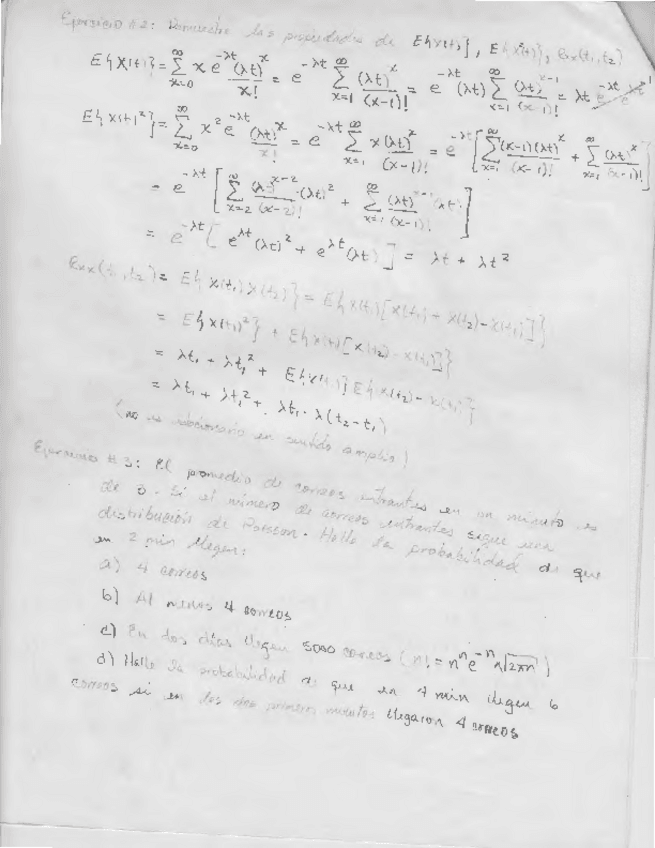 Ejercicio #2: Demuestre las propiedades de E{X(t)}, E{X²(t)}, Rxx(t₁,t₂)
E{X(t)} = ∑_{x=0}^{∞} x e^{-λt} (λt)^x / x! = e^{-λt} ∑_{x=1}^{∞} (λt)^x / (x-1)! = e^{-λt} (λt) ∑_{x=1}^{∞} (λt)^{x-1} / (x-1)! = λt e^{-λt} e^{λt}
E{X(t)²} = ∑_{x=0}^{∞} x² e^{-λt} (λt)^x / x! = e^{-λt} ∑_{x=1}^{∞} x(λt)^x / (x-1)! = e^{-λt} [∑_{x=1}^{∞} (x-1)(λt)^x / (x-1)! + ∑_{x=1}^{∞} (λt)^x / (x-1)!]
= e^{-λt} [∑_{x=2}^{∞} (λt)^{x-2} (λt)² / (x-2)! + ∑_{x=1}^{∞} (λt)^{x-1} (λt) / (x-1)!]
= e^{-λt} [e^{λt} (λt)² + e^{λt} (λt)] = λt + λt²
Rxx(t₁,t₂) = E{X(t₁) X(t₂)} = E{X(t₁)[X(t₁) + X(t₂) - X(t₁)]}
= E{X(t₁)²} + E{X(t₁)[X(t₂) - X(t₁)]}
= λt₁ + λt₁² + E{X(t₁)} E{X(t₂) - X(t₁)}
= λt₁ + λt₁² + λt₁ · λ(t₂ - t₁)
(no es estacionario en sentido amplio)
Ejercicio #3: El promedio de correos entrantes en un minuto es
de 3. Si el número de correos entrantes sigue una
distribución de Poisson. Halle la probabilidad de que
en 2 min lleguen:
a) 4 correos
b) Al menos 4 correos
c) En dos días lleguen 5000 correos (n! = n^n e^{-n} √2πn)
d) Halle la probabilidad de que en 4 min lleguen 6
correos si en los dos primeros minutos llegaron 4 correos